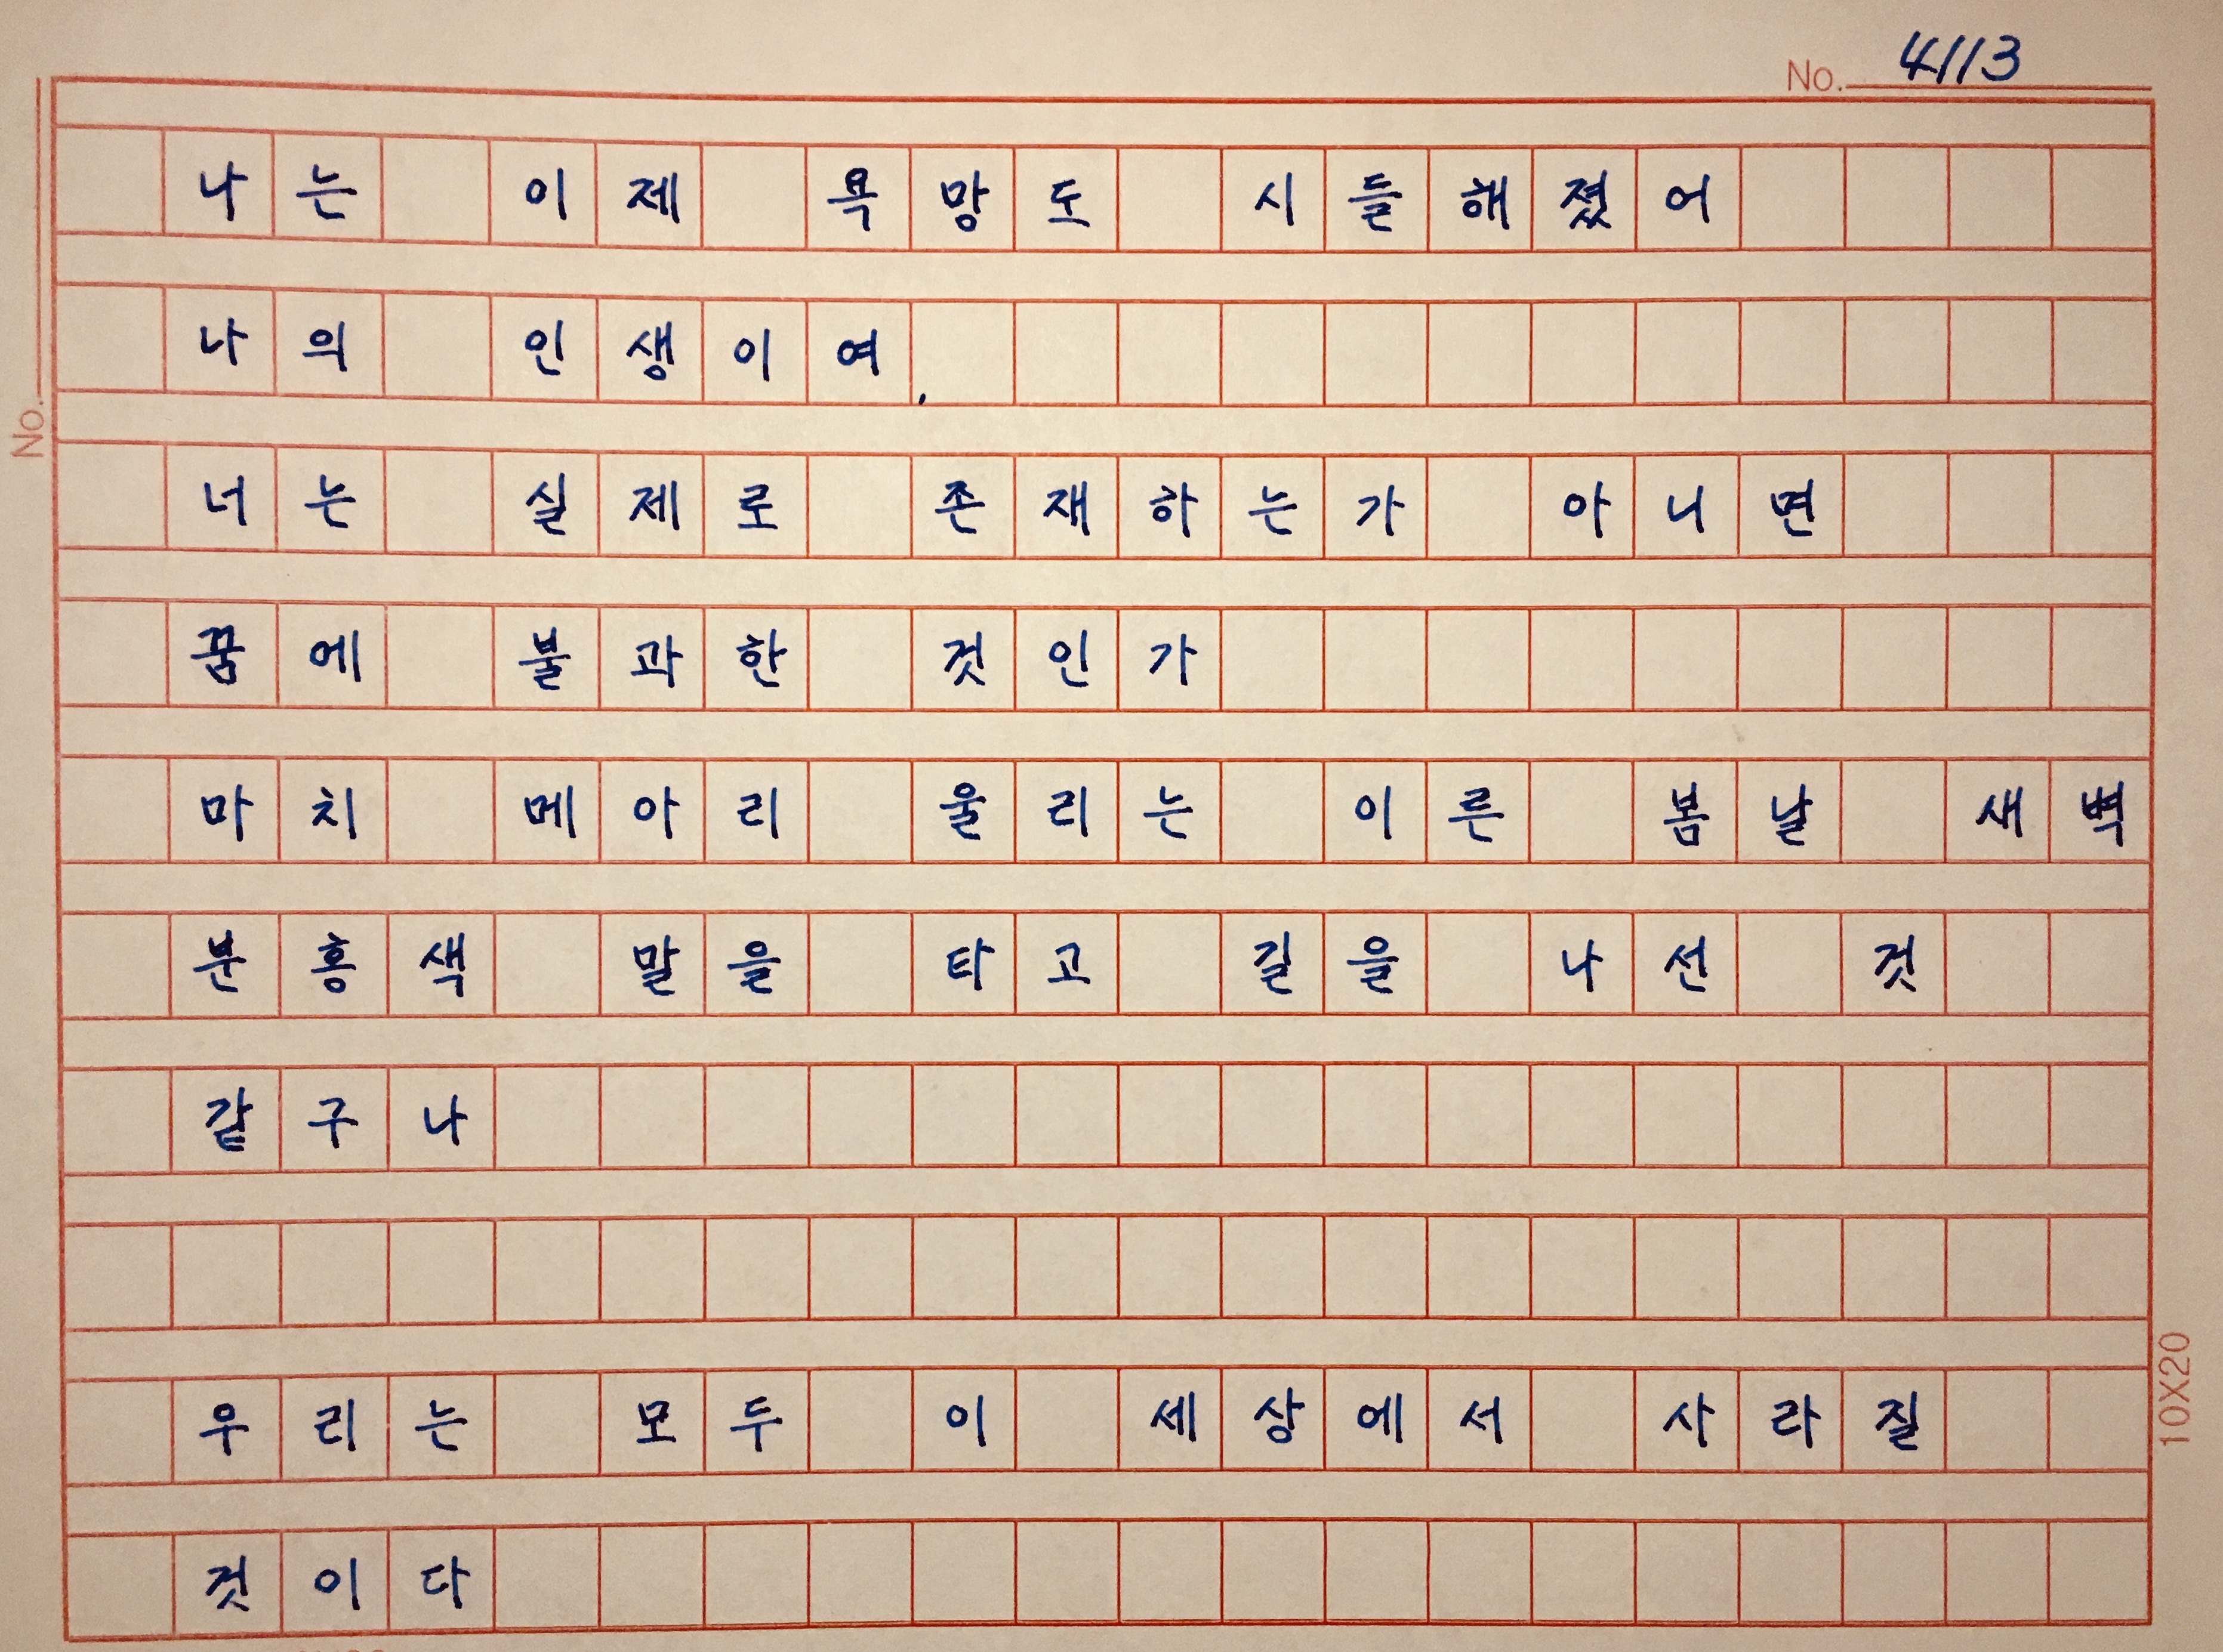 No. 4113
나는 이제 욕망도 시들해졌어
나의 인생이여,
너는 실제로 존재하는가 아니면
꿈에 불과한 것인가
마치 메아리 울리는 이른 봄날 새벽
분홍색 말을 타고 길을 나선 것
같구나
우리는 모두 이 세상에서 사라질
것이다
No.
10X20